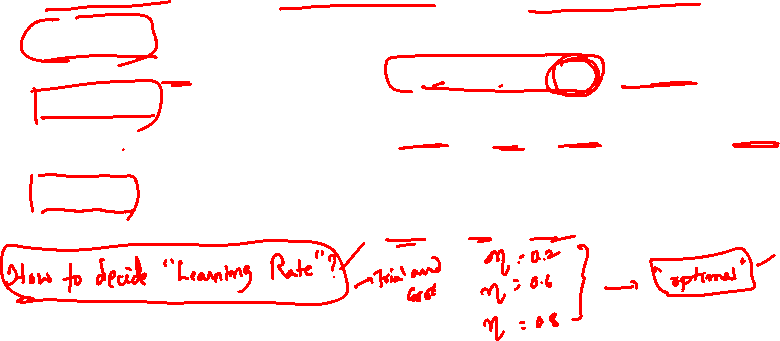 How to decide "Learning Rate"?
Trial and
η = 0.2
η = 0.6
η = 0.8
"optimal"